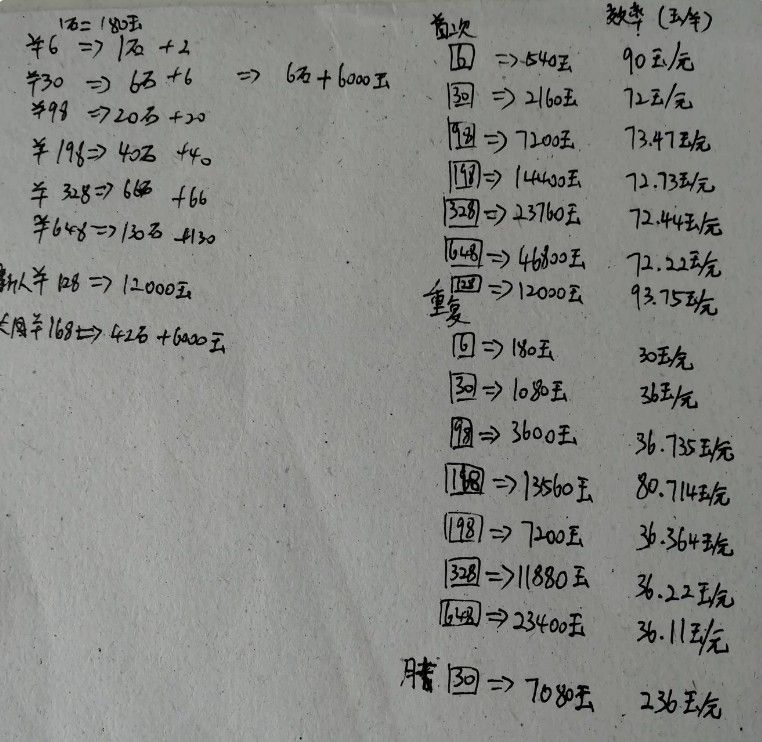 1石=180玉
¥6 => 1石+2
¥30 => 6石+6 => 6石+6000玉
¥98 => 20石+20
¥198 => 40石+40
¥328 => 66石+66
¥648 => 130石+130
新人¥128 => 12000玉
¥168 => 42石+6000玉
首次 效率(玉/¥)
6 => 540玉 90玉/元
30 => 2160玉 72玉/元
98 => 7200玉 73.47玉/元
198 => 14400玉 72.73玉/元
328 => 23760玉 72.44玉/元
648 => 46800玉 72.22玉/元
128 => 12000玉 93.75玉/元
重复
6 => 180玉 30玉/元
30 => 1080玉 36玉/元
98 => 3600玉 36.735玉/元
168 => 13560玉 80.714玉/元
198 => 7200玉 36.364玉/元
328 => 11880玉 36.22玉/元
648 => 23400玉 36.11玉/元
月 30 => 7080玉 236玉/元